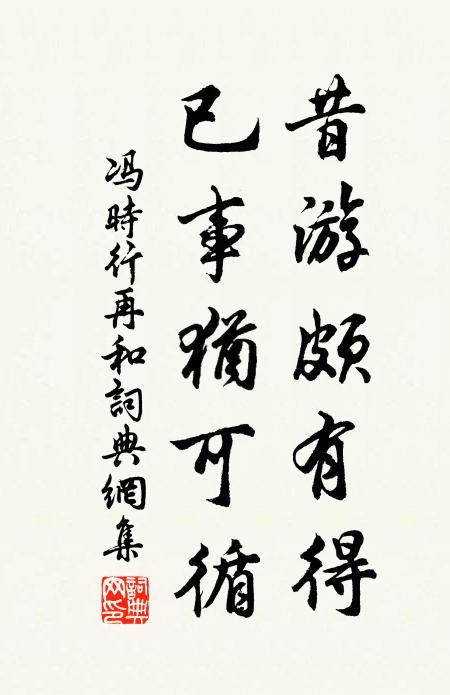 昔游頗有得
已事猶可循
冯時行再和詞典網集
詞典网印